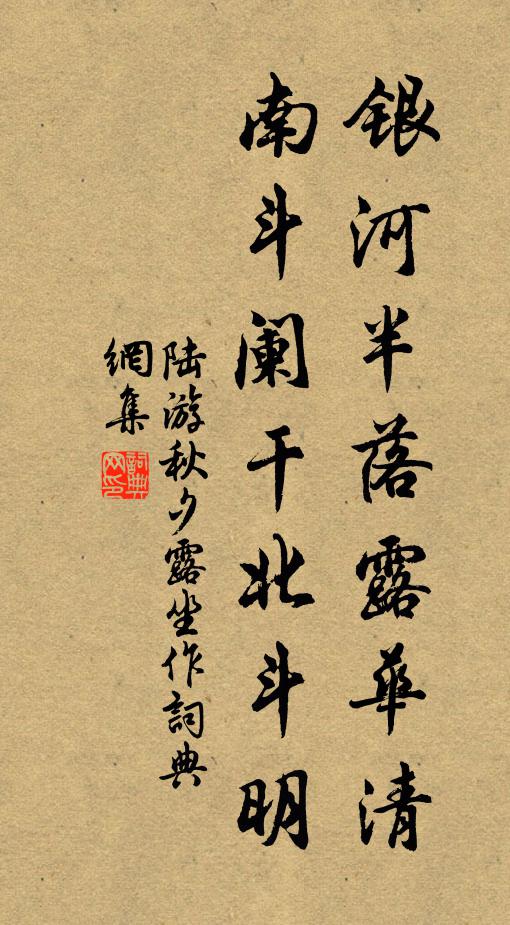 银河半落露華清
南斗阑干北斗明
陆游秋夕露坐作詞典
網集
詞典
网印